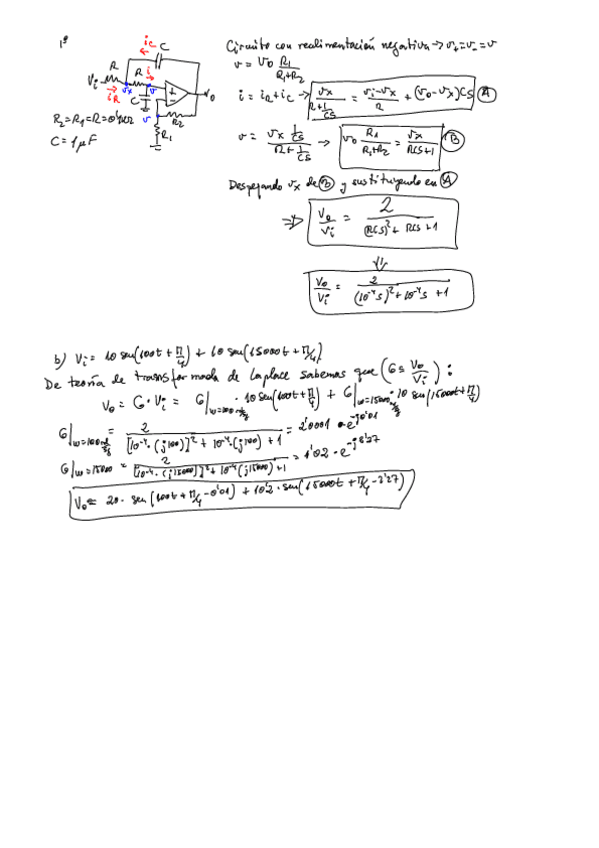 1º
Circuito con realimentación negativa → v₊ = v₋ = v
v = v₀ R₁/(R₁+R₂)
i_C C
R R i
Vi
i_R vx v
C
+
-
v₀
R₂
v
R₁
R₂=R₁=R=0'1kΩ
C = 1 μF
i = i_R + i_C → vx/(R+1/CS) = (vi-vx)/R + (v₀-vx)CS (A)
v = vx 1/CS / (R+1/CS) → v₀ R₁/(R₁+R₂) = vx/(RCS+1) (B)
Despejando vx de (B) y sustituyendo en (A)
⇒ V₀/Vi = 2/((RCS)²+RCS+1)
⇓
V₀/Vi = 2/((10⁻⁴s)²+10⁻⁴s+1)
b) Vi = 10 sen(100t + π/4) + 10 sen(15000t + π/4)
De teoría de transformada de Laplace sabemos que (G = V₀/Vi) :
V₀ = G·Vi = G|w=100 rad/sg · 10 sen(100t + π/4) + G|w=15000 rad/sg · 10 sen(15000t + π/4)
G|w=100 rad/sg = 2/([10⁻⁴·(j100)]² + 10⁻⁴·(j100) + 1) = 2'0001 · e^-j0'01
G|w=15000 = 2/([10⁻⁴·(j15000)]² + 10⁻⁴(j15000) + 1) = 1'02 · e^-j2'27
V₀ = 20· sen(100t + π/4 - 0'01) + 10'2 · sen(15000t + π/4 - 2'27)